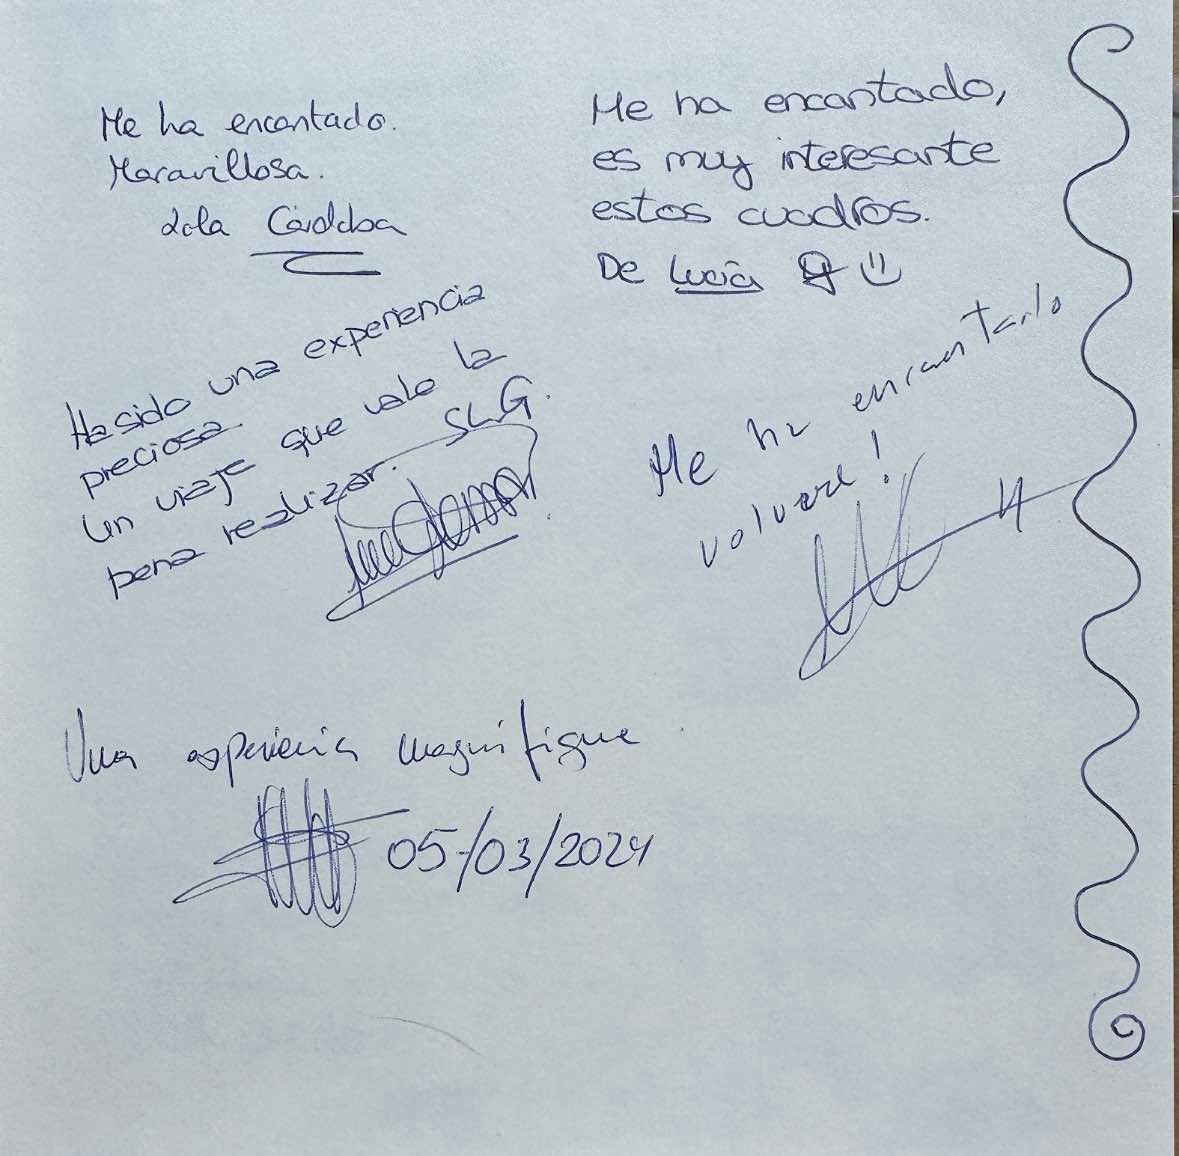 Me ha encantado.
Maravillosa.
Lola Córdoba
Me ha encantado,
es muy interesante
estos cuadros.
De Lucía
Ha sido una experiencia
preciosa.
Un viaje que vale la
pena realizar. SLG.
Me ha encantado
volveré!
Una experiencia magnifique
05/03/2024